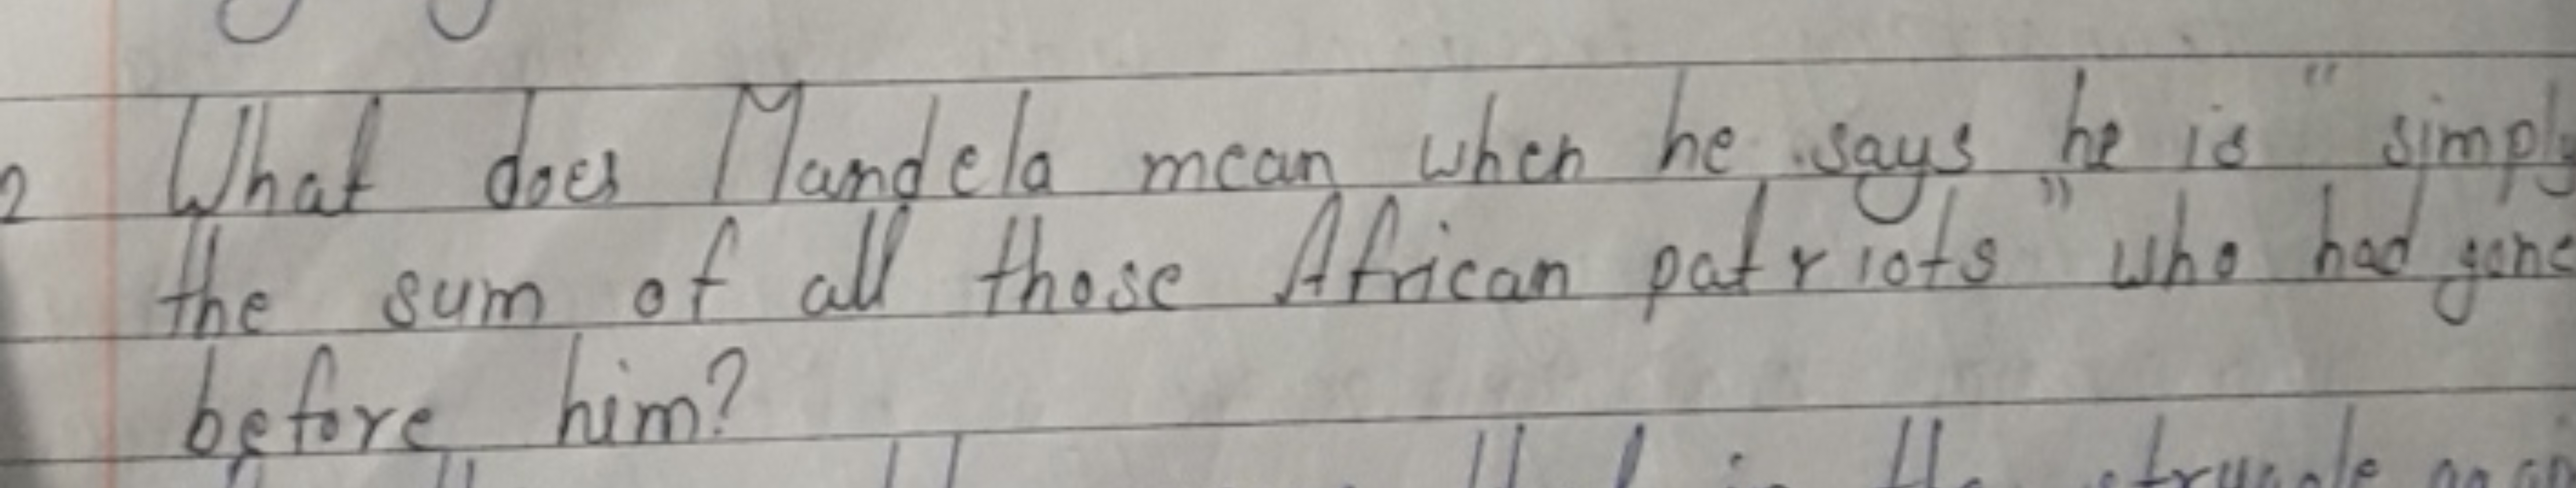 2 What does Mandela mean when he says he is "simply
the sum of all those African patriots" who had gone
before him?